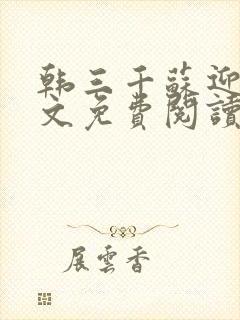 韩三千蘇迎
文免費閱讀
展雲香